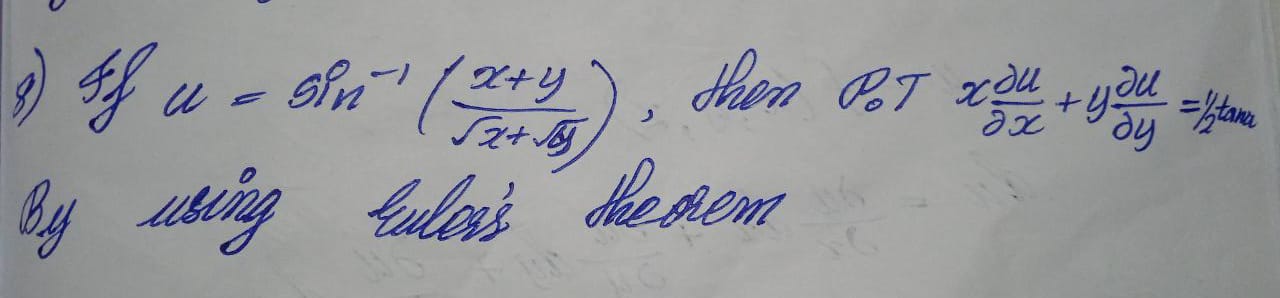 8) If u = sin⁻¹ (x+y / √x+√y), then P.T x ∂u/∂x + y ∂u/∂y = ½ tanu
By using Euler's theorem